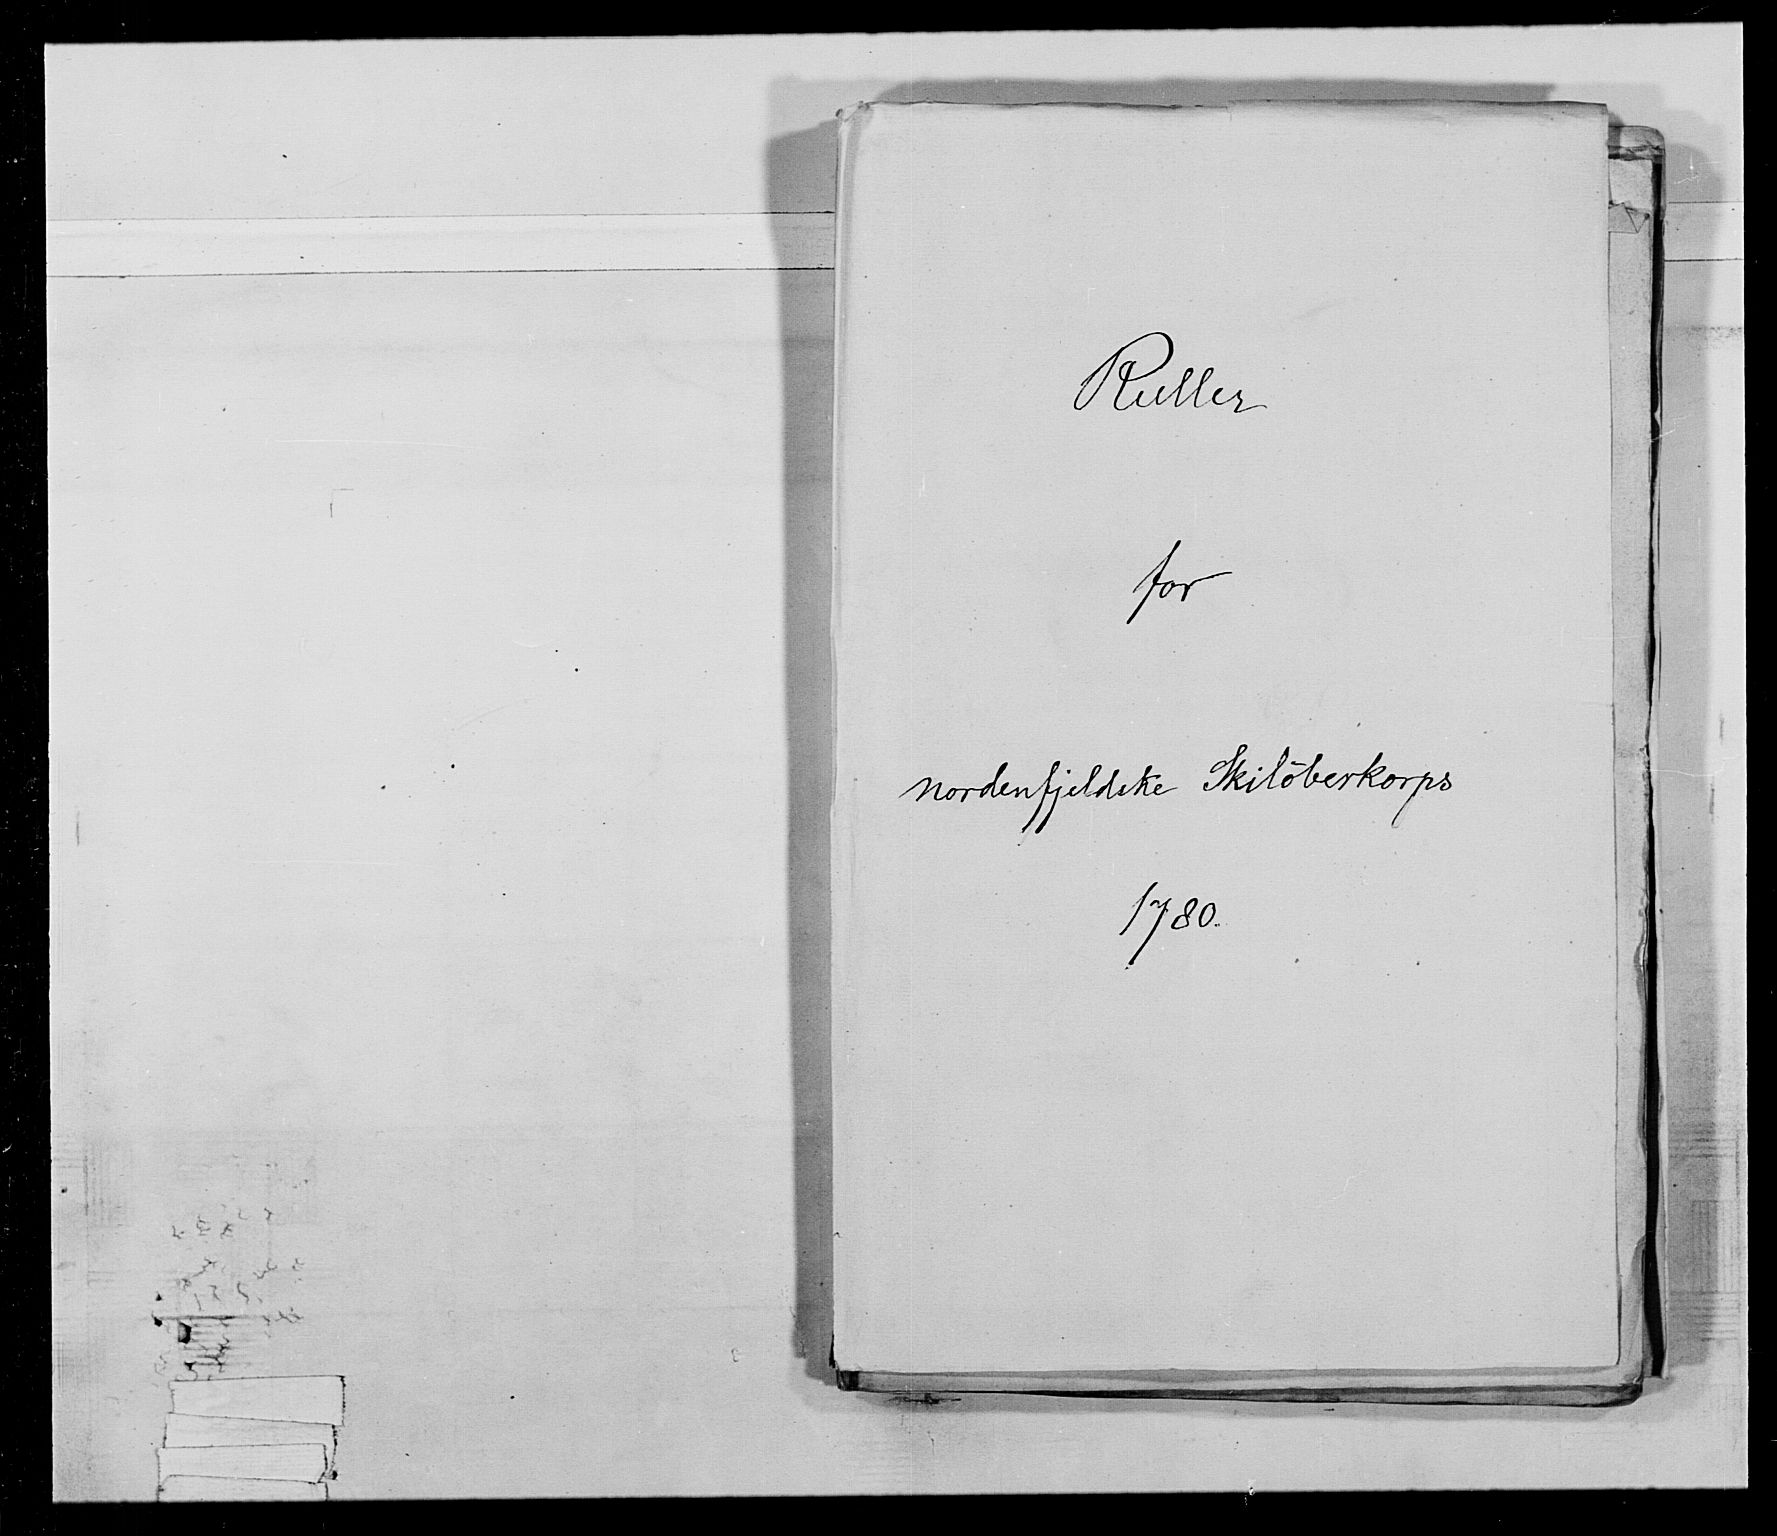 Ruller
for
nordenfjeldske Skilöberkorps
1780.